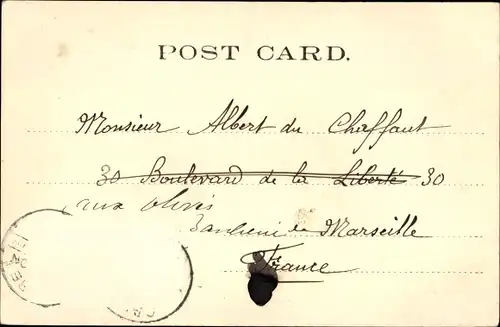 POST CARD.
Monsieur Albert du Chaffaut
30 Boulevard de la Liberté 30
aux
de Marseille
France